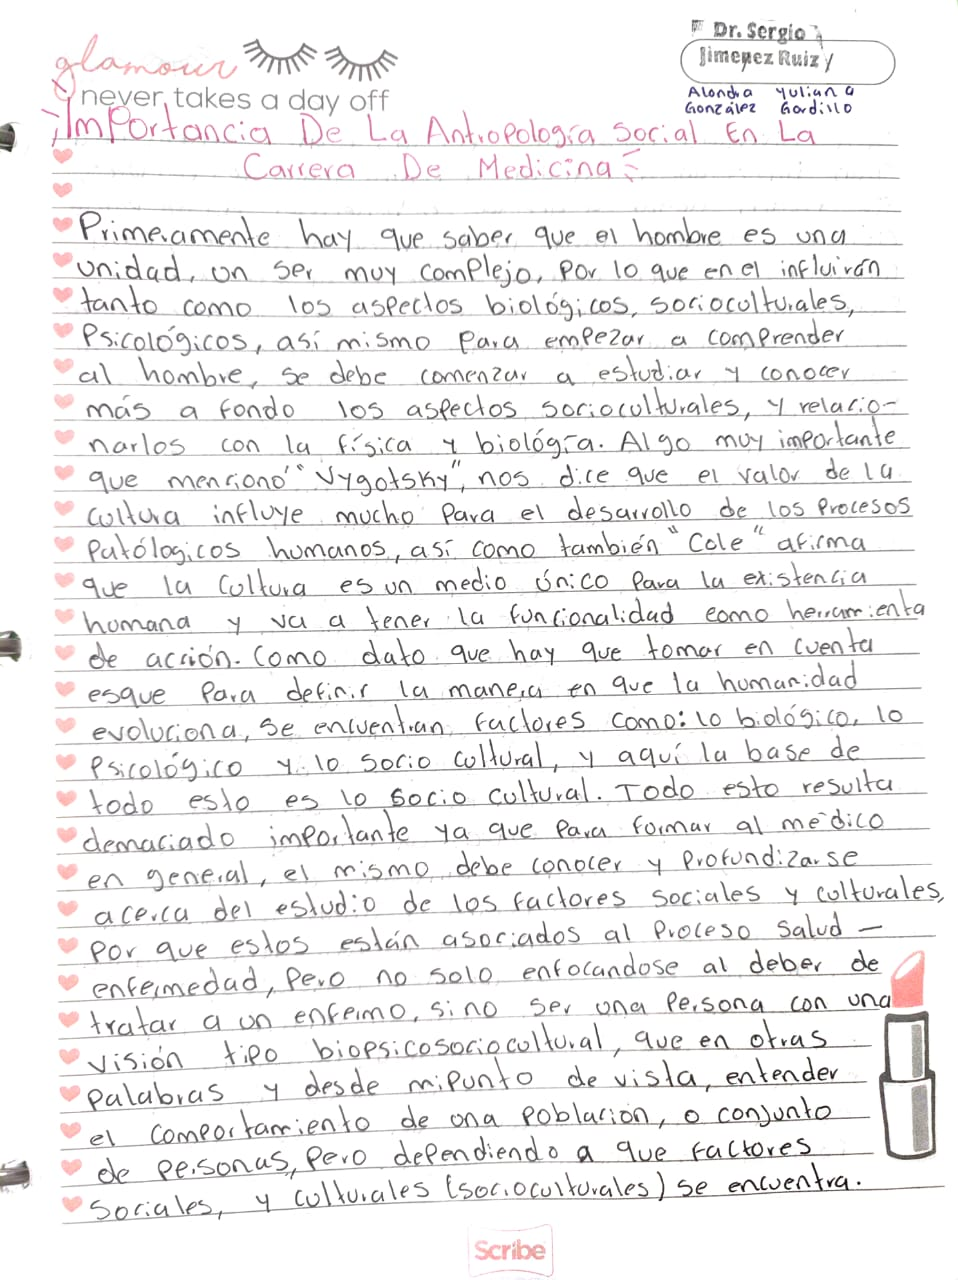 glamour
never takes a day off
Dr. Sergio
Jimenez Ruiz
Alondra Yuliana
González Gordillo
¡Importancia De La Antropología Social En La
Carrera De Medicina
Primeramente hay que saber que el hombre es una
unidad, un ser muy complejo, por lo que en el influirán
tanto como los aspectos biológicos, socioculturales,
Psicológicos, así mismo para empezar a comprender
al hombre, se debe comenzar a estudiar y conocer
más a fondo los aspectos socioculturales, y relacio-
narlos con la física y biológía. Algo muy importante
que mencionó "Vygotsky", nos dice que el valor de la
cultura influye mucho para el desarrollo de los procesos
Patólogicos humanos, así como también "Cole" afirma
que la cultura es un medio único para la existencia
humana y va a tener la funcionalidad como herramienta
de acción. Como dato que hay que tomar en cuenta
esque para definir la manera en que la humanidad
evoluciona, se encuentran factores como: lo biológico, lo
Psicológico y lo socio cultural, y aquí la base de
todo esto es lo socio cultural. Todo esto resulta
demaciado importante ya que para formar al médico
en general, el mismo debe conocer y profundizarse
acerca del estudio de los factores sociales y culturales,
por que estos están asociados al proceso salud -
enfermedad, pero no solo enfocandose al deber de
tratar a un enfermo, si no ser una persona con una
visión tipo biopsicosociocultural, que en otras
palabras y desde mi punto de vista, entender
el comportamiento de una población, o conjunto
de personas, pero dependiendo a que factores
sociales, y culturales (socioculturales) se encuentra.
Scribe